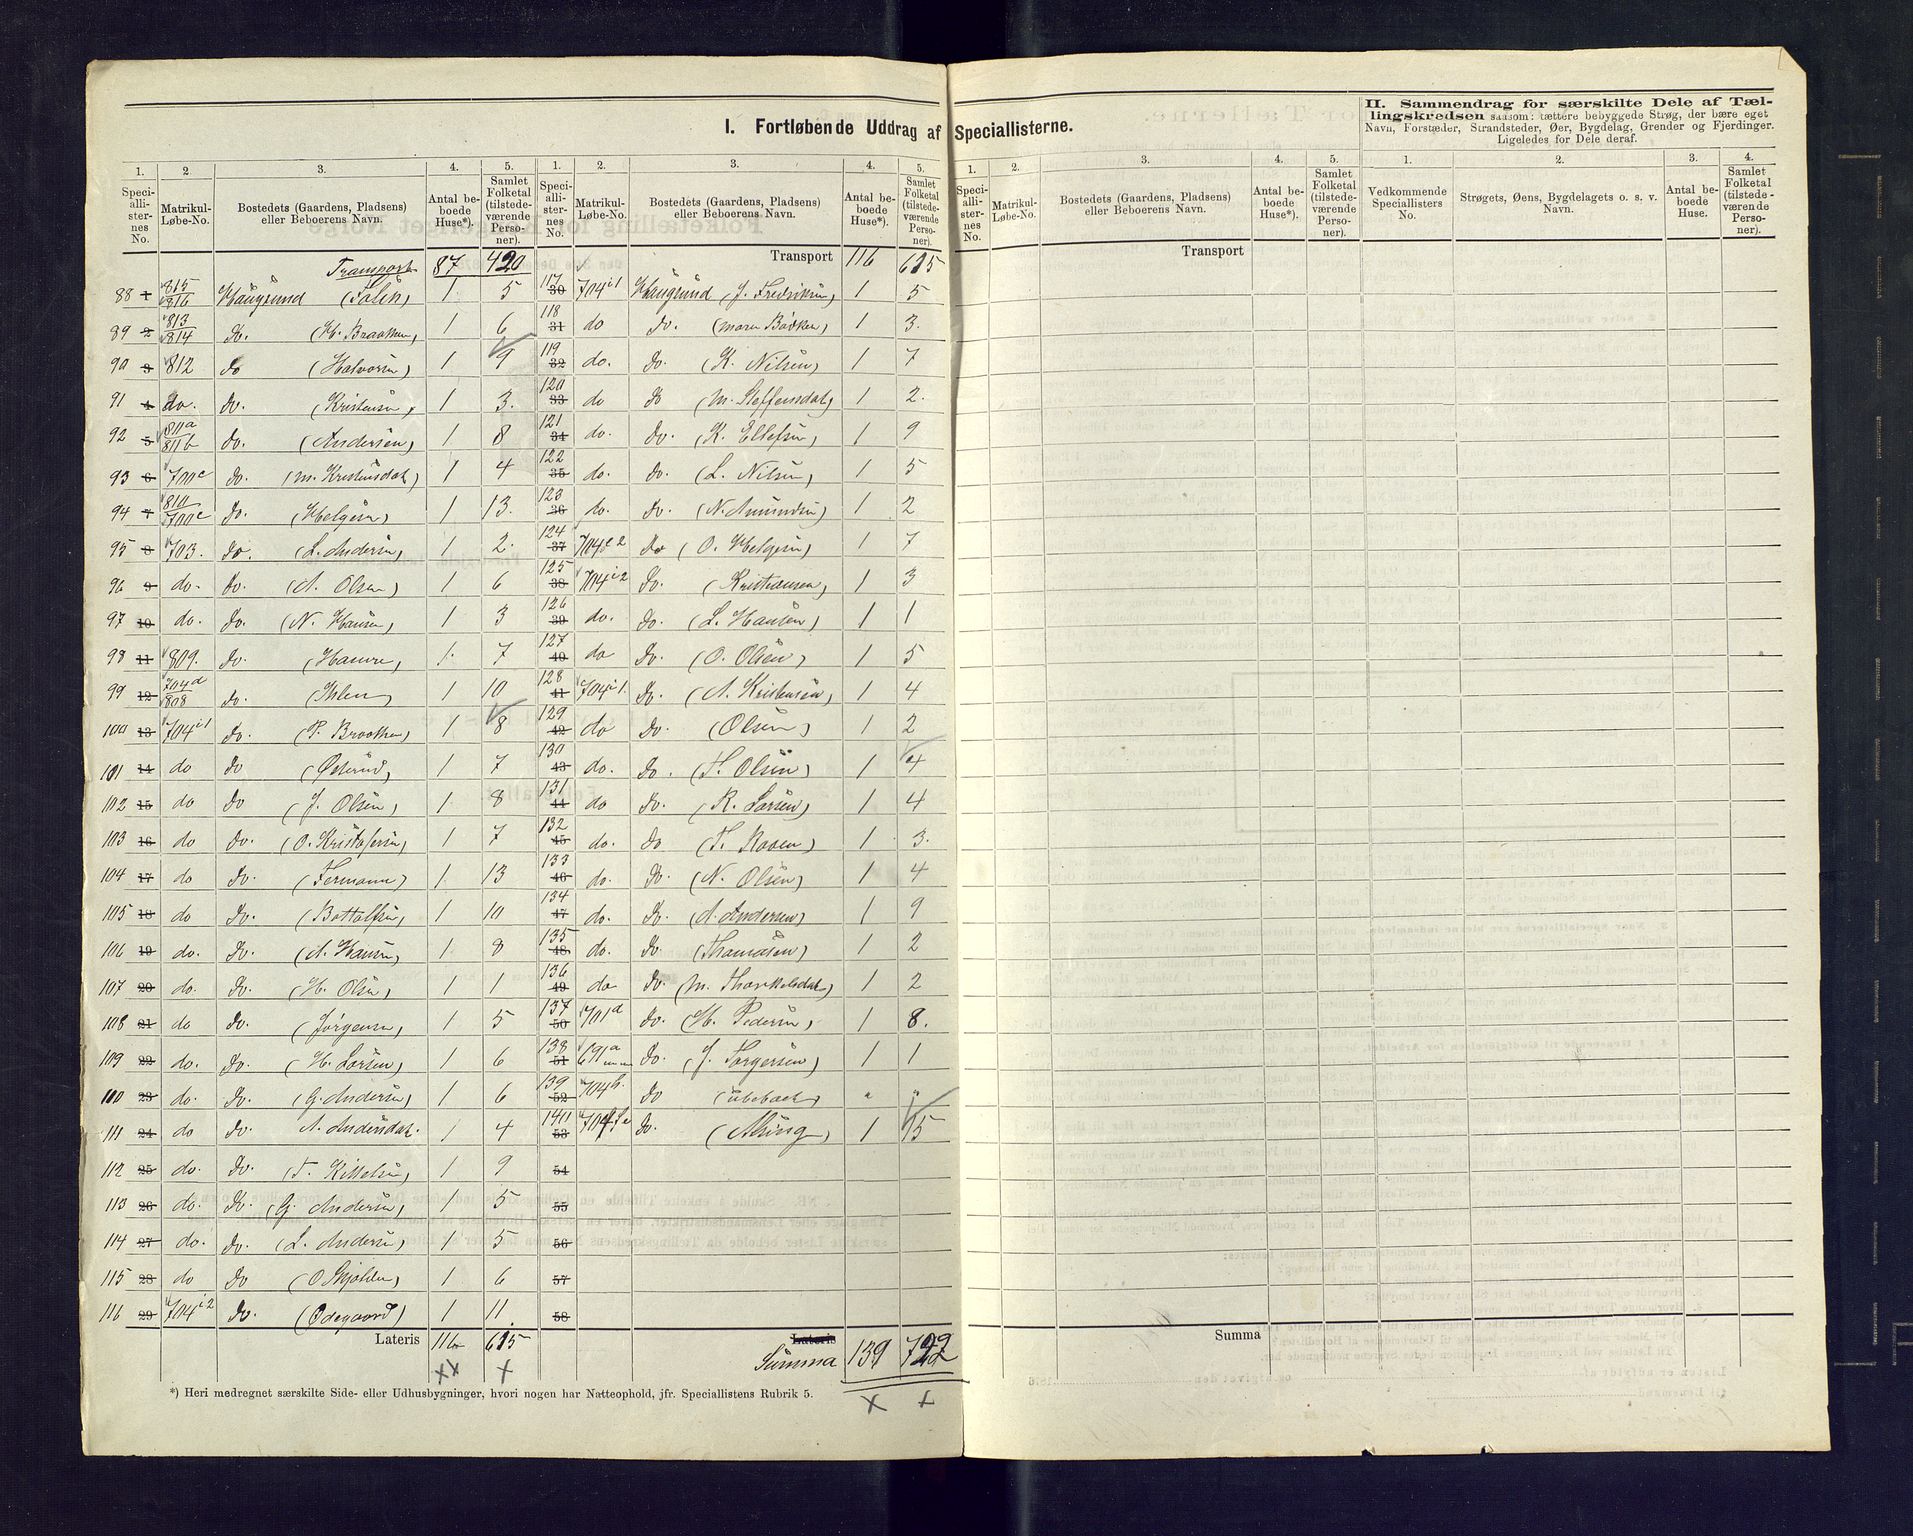 I. Fortløbende Uddrag af Speciallisterne.
II. Sammendrag for særskilte Dele af Tællingskredsen saasom: tættere bebyggede Strøg, der bære eget Navn, Forstæder, Strandsteder, Øer, Bygdelag, Grender og Fjerdinger. Ligeledes for Dele deraf.
1. 2 3. 4. 5. 1. 2. 3. 4. 5. 1. 2. 3. 4. 5. 1. 2. 3. 4.
Speciallisternes No. Matrikul-Løbe-No. Bostedets (Gaardens, Pladsens) eller Beboerens Navn. Antal beboede Huse*). Samlet Folketal (tilstedeværende Personer).
Speciallisternes No. Matrikul-Løbe-No. Bostedets (Gaardens, Pladsens) eller Beboerens Navn. Antal beboede Huse*). Samlet Folketal (tilstedeværende Personer).
Speciallisternes No. Matrikul-Løbe-No. Bostedets (Gaardens, Pladsens) eller Beboerens Navn. Antal beboede Huse*). Samlet Folketal (tilstedeværende Personer).
Vedkommende Speciallisters No. Strøgets, Øens, Bygdelagets o. s. v. Navn. Antal beboede Huse. Samlet Folketal (tilstedeværende Personer).
Transport 87 420
88 1 815/816 Haugsund 1 5
89 2 813/814 do. (H. Braathen) 1 6
90 3 812 do (Halvorsen) 1 9
91 4 do. do. (Kristensen) 1 3.
92 5 811a/811b do. (Andersen) 1 8
93 6 700c do. (M. Kristensdat) 1 4
94 7 810/700c do. (Helgesen) 1 13.
95 8 703. do. (L. Andersen) 1 2.
96 9 do. do. (A. Olsen) 1 6
97 10 do. do. (N. Hansen) 1 3
98 11 809. do. 1. 7
99 12 704d/808 do. (Ihlen) 1 10
100 13 704i1 do. (P. Braathen) 1 8
101 14 do do (Østerud) 1 7
102 15 do do (J. Olsen) 1. 8
103 16 do do. (O. Kristofersen) 1 7
104 17 do do. (Fermann) 1. 13
105 18 do do. (Bottolfsen) 1 10
106 19 do. do. (A. Hansen) 1. 8
107 20 do. do. (H. Olsen) 1 1
108 21 do do. (Jørgensen) 1 5
109 22 do. do. (H. Larsen) 1 6
110 23 do. do. (G. Andersen) 1 6
111 24 do do. A. Andersdat. 1 4
112 25 do. do. (T. Kittelsen) 1 9
113 26 do. do. (G. Andersen) 1 5
114 27 do. do. (L. Andersen) 1 5
115 28 do do (O Skjolden) 1 6
116 29 704i2 do. (Ødegaard) 1 11.
Lateris 116 615
Transport 116 615
117 30 704i1 Haugsund (J. Fredriksen) 1 5
118 31 do do. (Maren Bakken) 1 3.
119 32 do. do. (K. Nilsen) 1 7
120 33 do do (M. Steffensdat) 1 2.
121 34 do. do. (K. Ellefsen) 1 9
122 35 do. do. (L. Nilsen) 1 5
123 36 do. do. (N. Amundsen) 1 2
124 37 704e2 do (O. Helgesen) 1 7
125 38 704i2 do. (Kristiansen) 1 3
126 39 do. do. (L. Hansen) 1 1
127 40 do do. (O. Olsen) 1 5
128 41 704i1. do. (A. Kristensen) 1 4
129 42 do do. (Olsen) 1 2
130 43 do. do. (T. Olsen) 1 4
131 44 do do. (R. Larsen) 1 4
132 45 do. do (T. Raaen) 1 3.
133 46 do. do. (N. Olsen) 1 4
134 47 do. do. (A. Andersen) 1 9
135 48 do. do. (Thomasen) 1 2
136 49 do do. (M. Thorkelsdat) 1 2
137 50 701d do. (H. Pedersen) 1 8.
138 51 691a do. (J. Torgersen) 1 1
139 52 704h. do (ubeboet) " "
140 53 do. 1 15
54
55
56
57
58
Lateris
Summa 139 722
Transport
Summa
*) Heri medregnet særskilte Side- eller Udhusbygninger, hvori nogen har Natteophold, jfr. Speciallistens Rubrik 5.